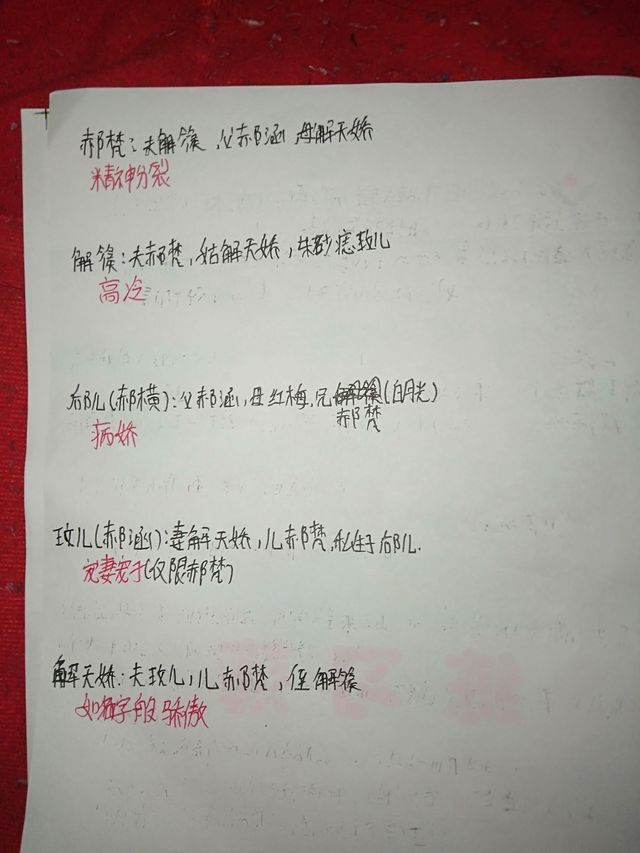 郝梵：夫解箓，父郝涵，母解天娇
精神分裂
解箓：夫郝梵，姑解天娇，朱砂痣玫儿
高冷
后儿(郝横)：父郝涵，母红梅，兄(白月光)
郝梵
病娇
玫儿(郝涵)：妻解天娇，儿郝梵，私生子后儿.
宠妻宠子(仅限郝梵)
解天娇：夫玫儿，儿郝梵，侄解箓
如名字般骄傲